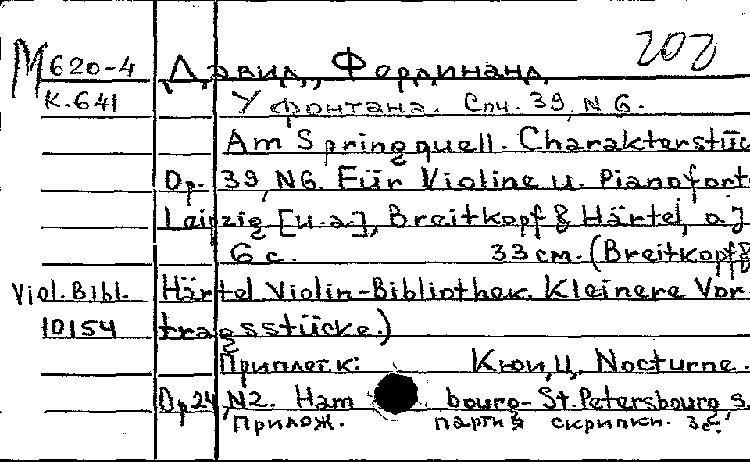 М620-4 Давид, Фердинанд. 202
К.641 У фонтана. Соч. 39, N 6.
Am Springquell. Charakterstüc
Op. 39, N6. Für Violine u. Pianofort
Leipzig [u.a.], Breitkopf & Härtel, a.J
6 с. 33 см. (Breitkopf &
Viol.Bibl. Härtel Violin-Bibliothek. Kleinere Vor-
10154 tragsstücke.)
Приплет к: Кюи, Ц. Nocturne.
Op 24, N2. Ham bourg- St.Petersbourg s.
Прилож. партия скрипки. 3с.